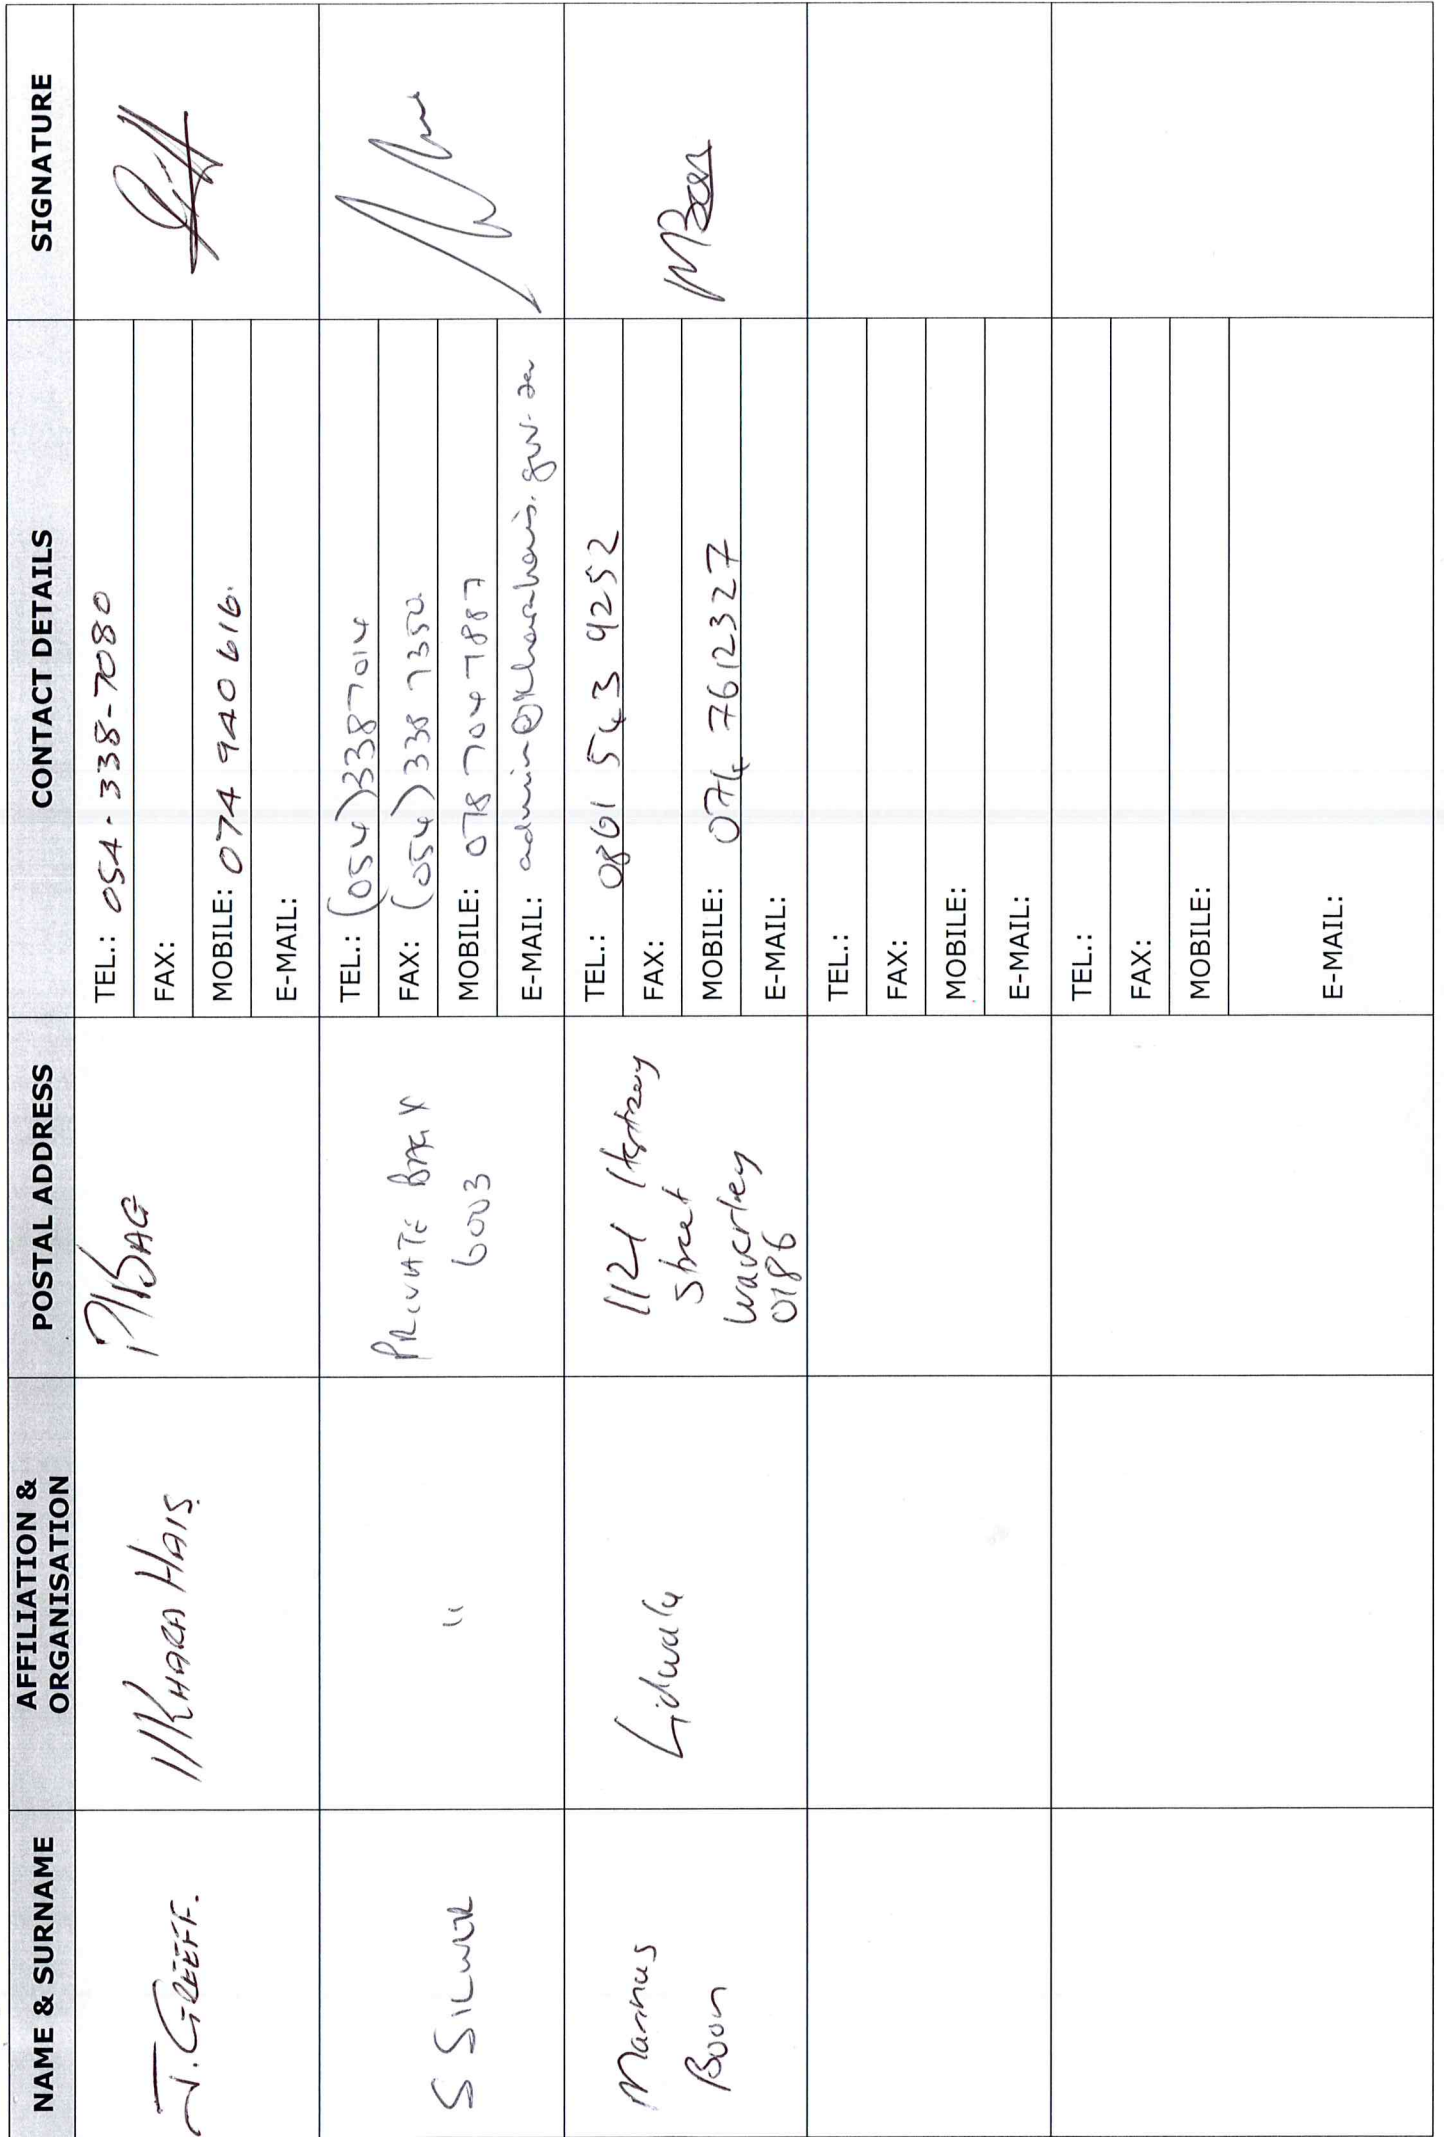 NAME & SURNAME
AFFILIATION & ORGANISATION
POSTAL ADDRESS
CONTACT DETAILS
SIGNATURE
J. GREEFF.
//KHARA HAIS
P/BAG
TEL.: 054-338-7080
FAX:
MOBILE: 074 940 616.
E-MAIL:
S SILWER
"
PRIVATE BAG X
6003
TEL.: (054) 3387014
FAX: (054) 338 7350
MOBILE: 078 704 7887
E-MAIL: admin@kharahais.gov.za
Marinus
Boon
Lidwala
1121
Street
Waverley
0186
TEL.: 0861 543 9252
FAX:
MOBILE: 074 7612327
E-MAIL:
MBoon
TEL.:
FAX:
MOBILE:
E-MAIL:
TEL.:
FAX:
MOBILE:
E-MAIL: